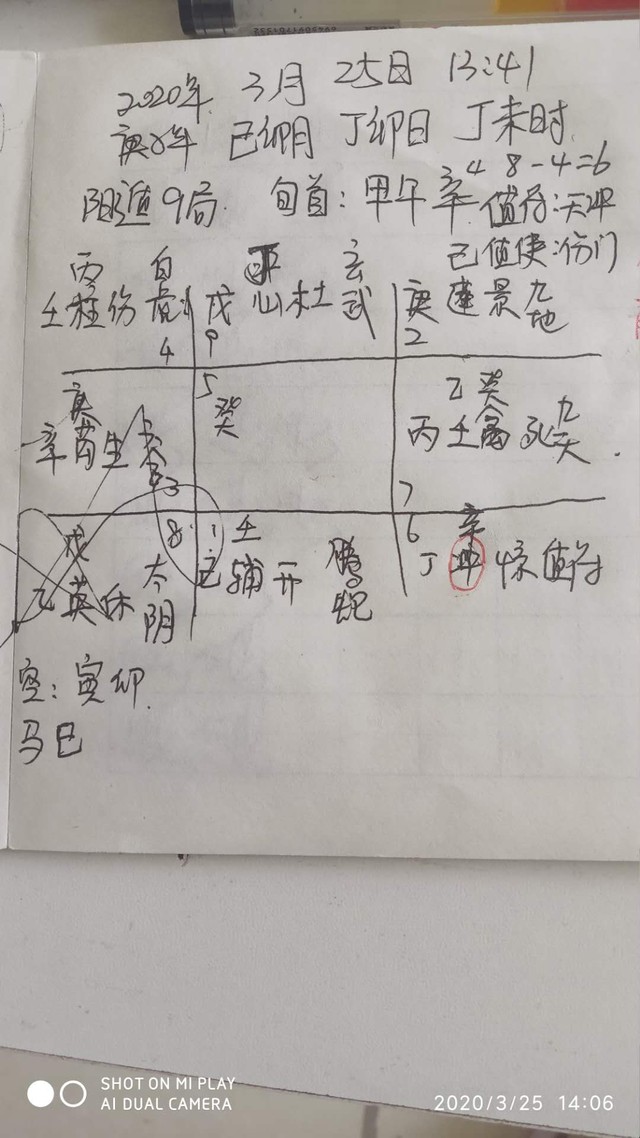 2020年 3月 25日 13:41
庚子年 己卯月 丁卯日 丁未时
阳遁9局 旬首：甲午辛 4 8-4=6
值符：天冲
值使：伤门
丙 白虎
壬 柱 伤
4
玄武
戊 心 杜
9
庚 蓬 景 九地
2
庚
辛 芮 生
3
5
癸
乙 癸
丙 壬 禽 死 九天
7
戊
乙 英 休 太阴
8
1 壬
己 辅 开 腾蛇
6 辛
丁 冲 惊 值符
空：寅卯
马巳
SHOT ON MI PLAY
AI DUAL CAMERA
2020/3/25 14:06